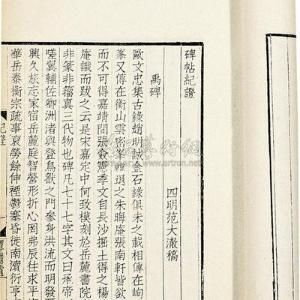 碑帖紀證
四明范大澈稿
禹碑
歐文忠集古趙明誠金石錄俱未之載相傳在岣
峯又傳在衡山雲密峯之朱晦庵張南軒皆欲
而不可得嘉靖間張憲季文自長沙掘土得之楊
庵識而跋之云是宋嘉定中何致模刻於岳麓書院
非篆非籀真三代物也碑凡七十七字其文曰承帝
嗟翼輔佐卿洲渚與登鳥獸之門參身洪流而明發
興久旅忘家宿岳麓庭智營形折心罔弗辰往求平
華岳泰衡宗疏事裒勞餘伸禋鬱塞昏徙南瀆衍亨
www.artron.net